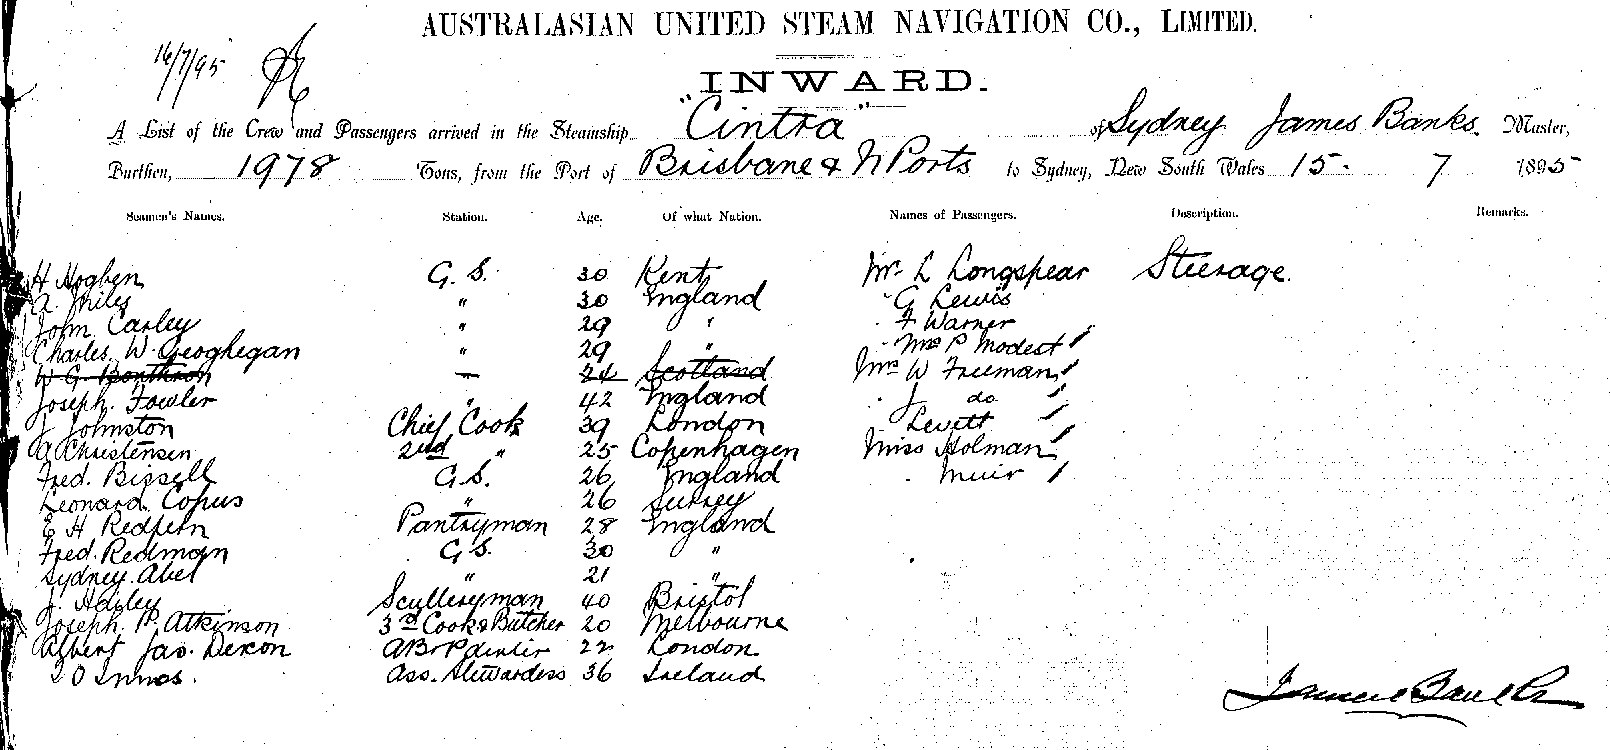 AUSTRALASIAN UNITED STEAM NAVIGATION CO., LIMITED.
16/7/95
INWARD.
A List of the Crew and Passengers arrived in the Steamship "Cintra" of Sydney James Banks. Master,
Burthen, 1978 Tons, from the Port of Brisbane & N Ports to Sydney, New South Wales 15. 7 1895
Seamen's Names. Station. Age. Of what Nation. Names of Passengers. Description. Remarks.
H Hogben G. S. 30 Kent Mr. L Longspear Steerage.
A Miles " 30 England " G Lewis
John Carley " 29 " F Warner
Charles W. Geoghegan " 29 " Mrs P Modest
W G Bonthron — 24 Scotland Mrs W Freeman
Joseph Fowler " 42 England J do
J Johnston Chief Cook 39 London Levett
A Christensen 2nd " 25 Copenhagen Miss Holman
Fred. Bissell G.S. 26 England Muir
Leonard Copus " 26 Surrey
E H Redfern Pantryman 28 England
Fred. Redman G.S. 30 "
Sydney Abel " 21 "
J. Sculleryman 40 Bristol
Joseph P. Atkinson 3rd Cook & Butcher 20 Melbourne
Albert Jas. Dexon 22 London
O Innes. Ass. Stewardess 36 Ireland
James Banks